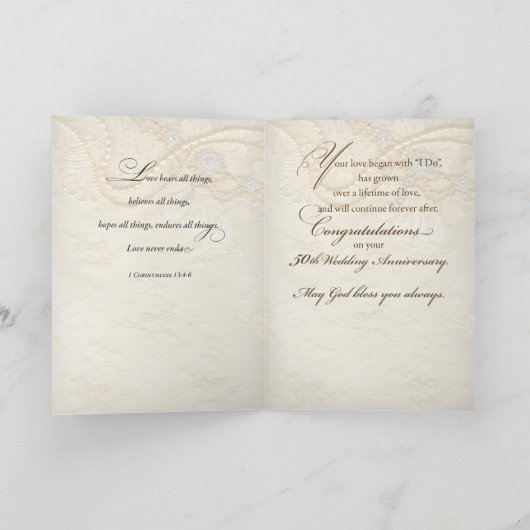 Love bears all things,
believes all things,
hopes all things, endures all things.
Love never ends
1 Corinthians 13:4-6
Your love began with "I Do",
has grown
over a lifetime of love,
and will continue forever after.
Congratulations
on your
50th Wedding Anniversary.
May God bless you always.